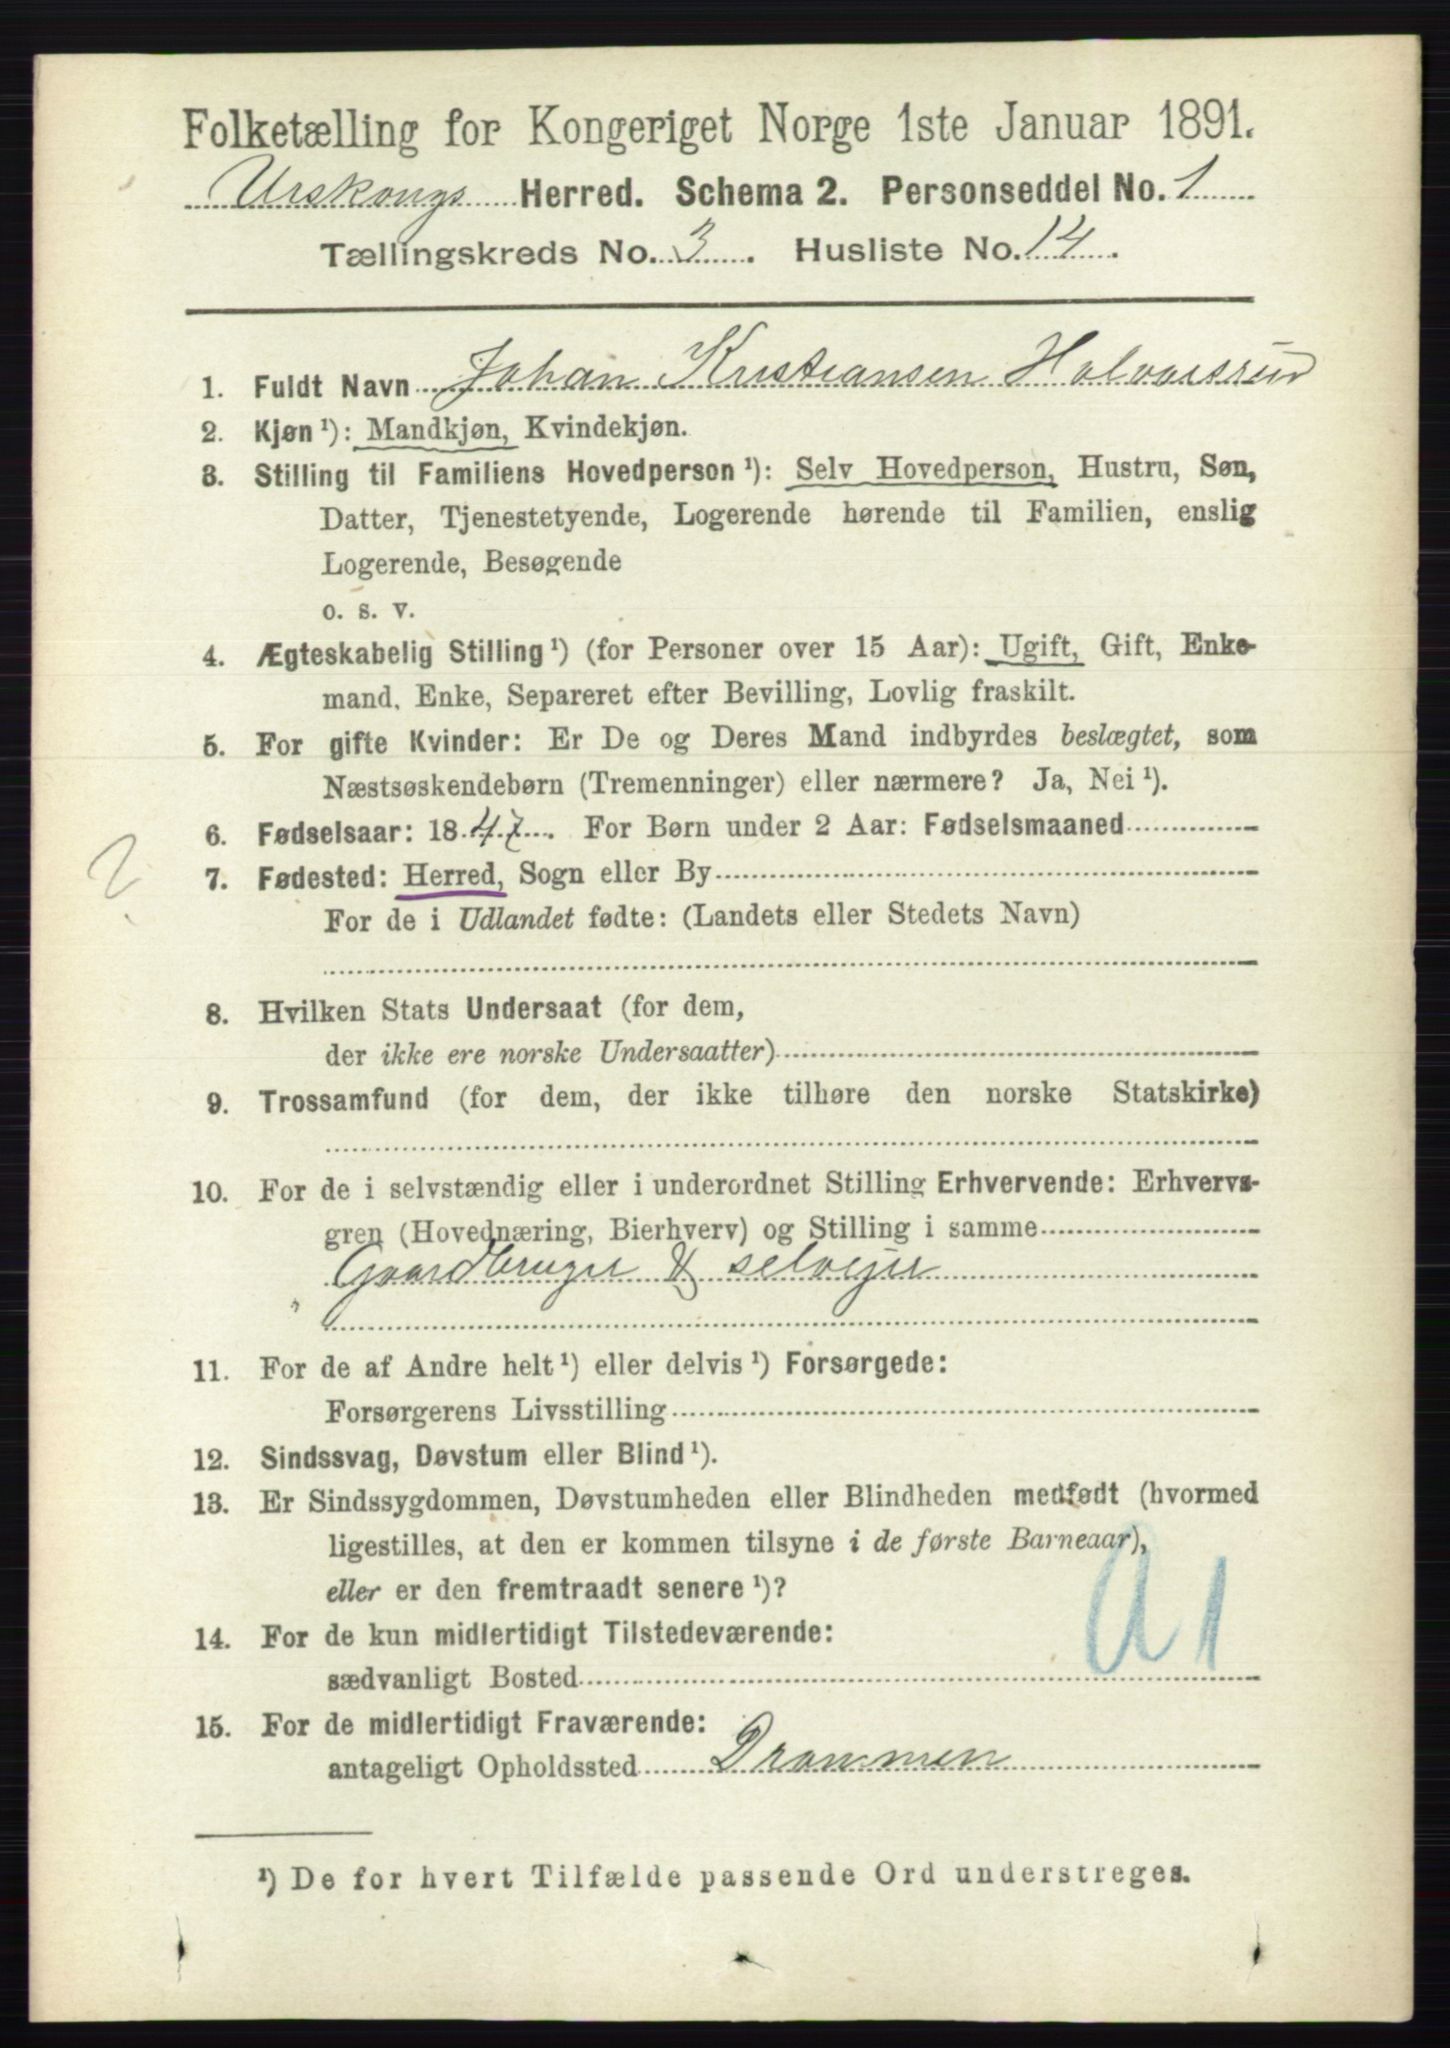 Folketælling for Kongeriget Norge 1ste Januar 1891.
Urskougs Herred. Schema 2. Personseddel No. 1
Tællingskreds No. 3. Husliste No. 14.
1. Fuldt Navn Johan Kristiansen Halvorsrud
2. Kjøn ¹): Mandkjøn, Kvindekjøn.
3. Stilling til Familiens Hovedperson ¹): Selv Hovedperson, Hustru, Søn,
Datter, Tjenestetyende, Logerende hørende til Familien, enslig
Logerende, Besøgende
o. s. v.
4. Ægteskabelig Stilling ¹) (for Personer over 15 Aar): Ugift, Gift, Enke-
mand, Enke, Separeret efter Bevilling, Lovlig fraskilt.
5. For gifte Kvinder: Er De og Deres Mand indbyrdes beslægtet, som
Næstsøskendebørn (Tremenninger) eller nærmere? Ja, Nei ¹).
6. Fødselsaar: 1847. For Børn under 2 Aar: Fødselsmaaned
7. Fødested: Herred, Sogn eller By
?
For de i Udlandet fødte: (Landets eller Stedets Navn)
8. Hvilken Stats Undersaat (for dem,
der ikke ere norske Undersaatter)
9. Trossamfund (for dem, der ikke tilhøre den norske Statskirke)
10. For de i selvstændig eller i underordnet Stilling Erhvervende: Erhvervs-
gren (Hovednæring, Bierhverv) og Stilling i samme
Gaardbruger & selveier
11. For de af Andre helt ¹) eller delvis ¹) Forsørgede:
Forsørgerens Livsstilling
12. Sindssvag, Døvstum eller Blind ¹).
13. Er Sindssygdommen, Døvstumheden eller Blindheden medfødt (hvormed
ligestilles, at den er kommen tilsyne i de første Barneaar),
eller er den fremtraadt senere ¹)?
a 1
14. For de kun midlertidigt Tilstedeværende:
sædvanligt Bosted
15. For de midlertidigt Fraværende:
antageligt Opholdssted Drammen
¹) De for hvert Tilfælde passende Ord understreges.